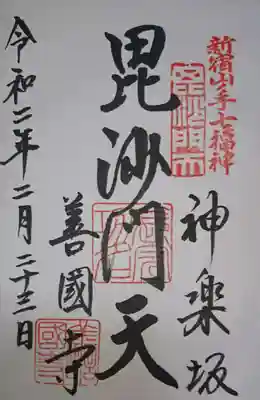 新宿山手七福神
神楽坂
毘沙門天
毘沙門天
善國寺
令和二年二月二十三日